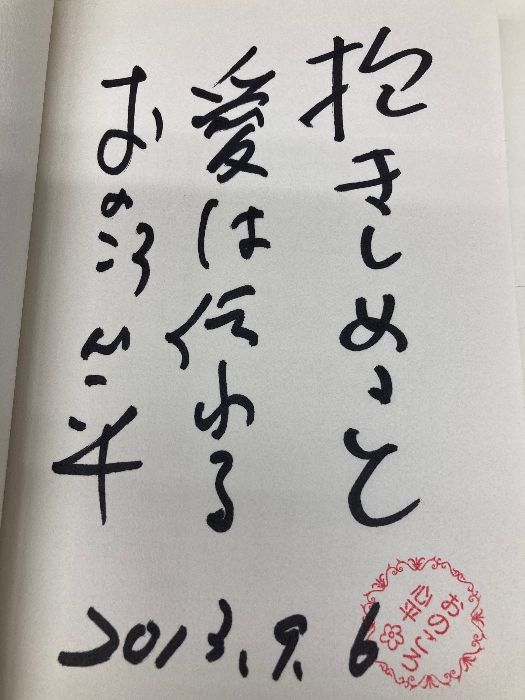 抱きしめると
愛は伝わる
おのころ心平
2013.9.6
おのころ
心平